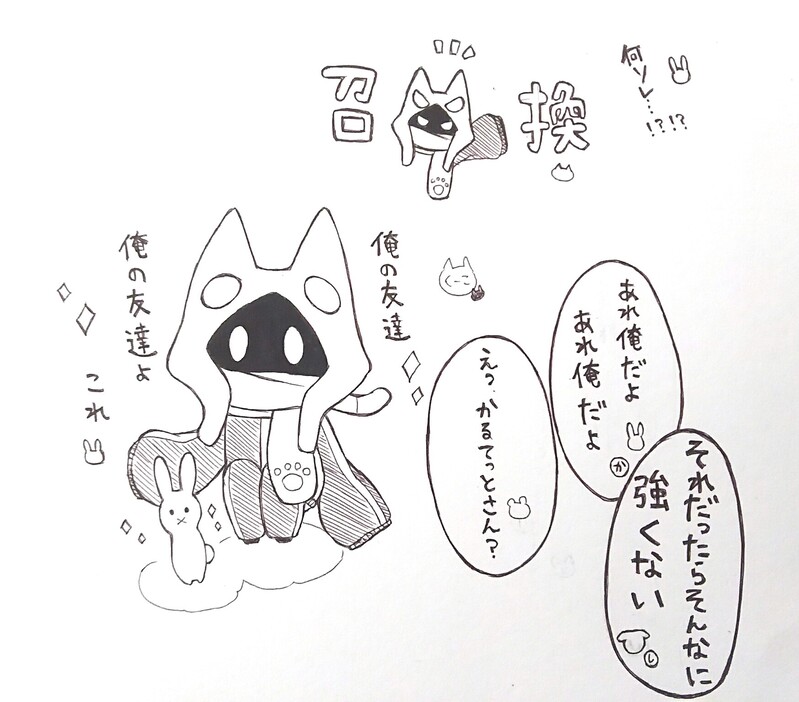 召喚
何ソレ…
!?!?
俺の友達
俺の友達よ
これ
あれ俺だよ
あれ俺だよ
か
えっ、かるてっとさん?
それだったらそんなに
強くない
し